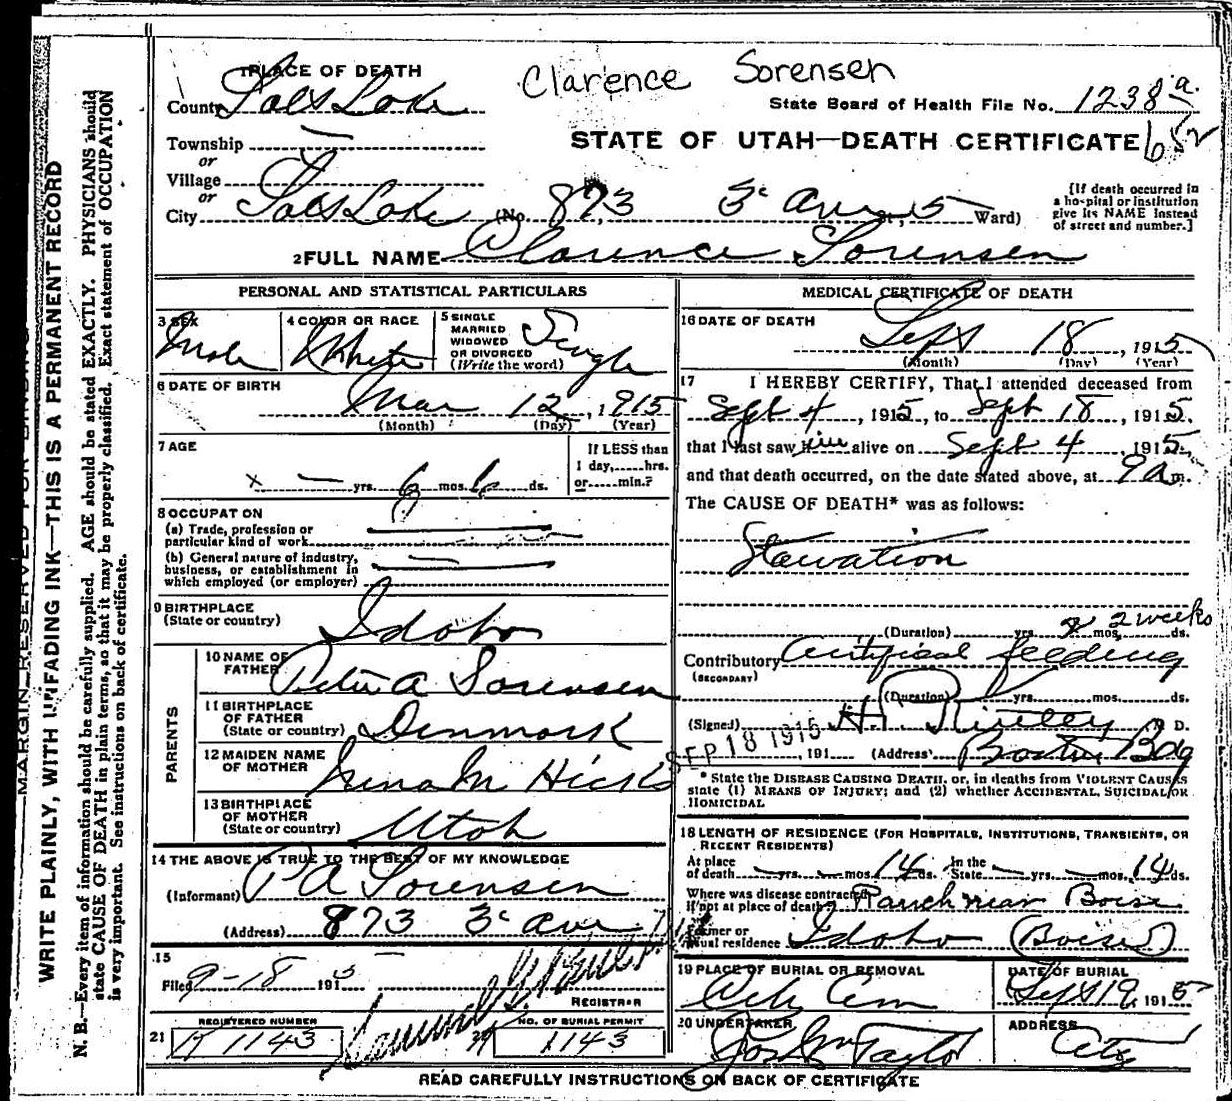 Clarence Sorensen
1 PLACE OF DEATH
County Salt Lake
State Board of Health File No. 1238 a.
Township —
STATE OF UTAH—DEATH CERTIFICATE 652
or
Village
or
City Salt Lake (No. 873 3d Ave St., 5 Ward)
[If death occurred in
a hospital or institution
give its NAME instead
of street and number.]
2 FULL NAME Clarence Sorensen
PERSONAL AND STATISTICAL PARTICULARS
3 SEX Male
4 COLOR OR RACE White
5 SINGLE
MARRIED
WIDOWED
OR DIVORCED
(Write the word) Single
6 DATE OF BIRTH
Mar 12, 1915
(Month) (Day) (Year)
7 AGE
If LESS than
1 day,......hrs.
or......min.?
x — yrs. 6 mos. 6 ds.
8 OCCUPATION
(a) Trade, profession or
particular kind of work
(b) General nature of industry,
business, or establishment in
which employed (or employer)
9 BIRTHPLACE
(State or country) Idaho
PARENTS
10 NAME OF
FATHER Peter A Sorensen
11 BIRTHPLACE
OF FATHER
(State or country) Denmark
12 MAIDEN NAME
OF MOTHER M Hicks
13 BIRTHPLACE
OF MOTHER
(State or country) Utah
14 THE ABOVE IS TRUE TO THE BEST OF MY KNOWLEDGE
(Informant) P A Sorensen
(Address) 873 3d Ave
15
Filed 9-18 1915
REGISTRAR
REGISTERED NUMBER
21 1143
NO. OF BURIAL PERMIT
1143
MEDICAL CERTIFICATE OF DEATH
16 DATE OF DEATH
Sept 18, 1915
(Month) (Day) (Year)
17 I HEREBY CERTIFY, That I attended deceased from
Sept 4, 1915, to Sept 18, 1915.
that I last saw him alive on Sept 4, 1915.
and that death occurred, on the date stated above, at 9 a m.
The CAUSE OF DEATH* was as follows:
Starvation
(Duration) yrs. mos. 2 weeks ds.
Contributory Artificial feeding
(SECONDARY)
(Duration) yrs. mos. ds.
(Signed) H. P. M. D.
SEP 18 1915, 191 (Address) Boston Bdg
* State the DISEASE CAUSING DEATH, or, in deaths from VIOLENT CAUSES
state (1) MEANS OF INJURY; and (2) whether ACCIDENTAL, SUICIDAL OR
HOMICIDAL
18 LENGTH OF RESIDENCE (FOR HOSPITALS, INSTITUTIONS, TRANSIENTS, OR
RECENT RESIDENTS)
At place
of death — yrs. — mos. 14 ds. In the
State — yrs. — mos. 14 ds.
Where was disease contracted
if not at place of death? Ranch near Boise
Former or
usual residence Idaho (Boise)
19 PLACE OF BURIAL OR REMOVAL
City Cem
DATE OF BURIAL
Sept 19, 1915
20 UNDERTAKER
Jos Wm Taylor
ADDRESS
City
READ CAREFULLY INSTRUCTIONS ON BACK OF CERTIFICATE
MARGIN RESERVED FOR BINDING
WRITE PLAINLY, WITH UNFADING INK—THIS IS A PERMANENT RECORD
N. B.—Every item of information should be carefully supplied. AGE should be stated EXACTLY. PHYSICIANS should
state CAUSE OF DEATH in plain terms, so that it may be properly classified. Exact statement of OCCUPATION
is very important. See instructions on back of certificate.